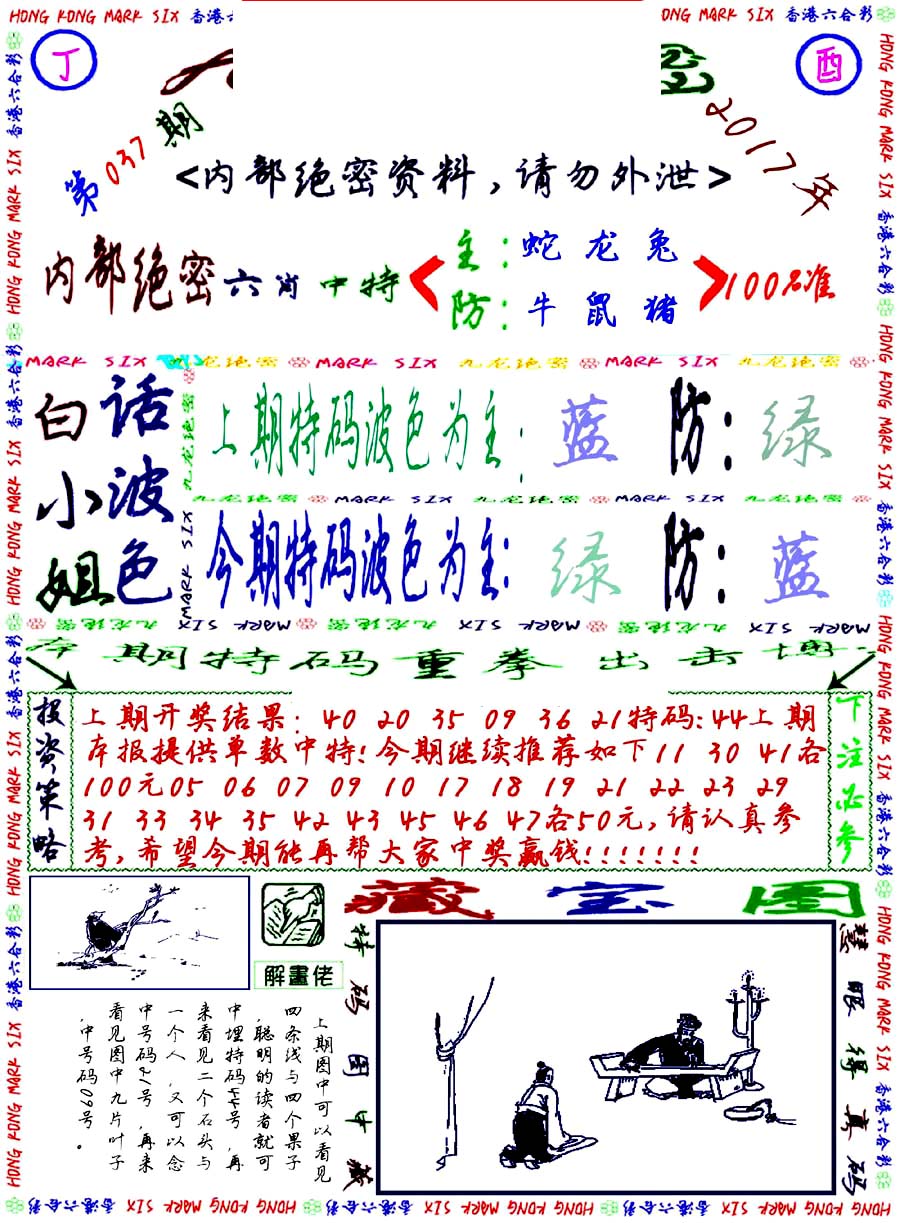 HONG KONG MARK SIX 香港六合彩
丁
酉
第037期
2017年
<内部绝密资料,请勿外泄>
内部绝密六肖中特
主:蛇 龙 兔
防:牛 鼠 猪
100%准
MARK SIX 九龙绝密 MARK SIX 九龙绝密 MARK SIX 九龙绝密
白小姐
话波色
上期特码波色为主:蓝 防:绿
九龙绝密 MARK SIX 九龙绝密 MARK SIX 九龙绝密
今期特码波色为主:绿 防:蓝
本期特码重拳出击博
投资策略
上期开奖结果: 40 20 35 09 36 21特码:44上期
本报提供单数中特!今期继续推荐如下11 30 41各
100元05 06 07 09 10 17 18 19 21 22 23 29
31 33 34 35 42 43 45 46 47各50元,请认真参
考,希望今期能再帮大家中奖赢钱!!!!!!!
下注必参
解畫佬
藏宝图
上期图中可以看见
四条线与四个果子
,聪明的读者就可
中埋特码44号,再
来看见二个石头与
一个人,又可以念
中号码21号,再来
看见图中九片叶子
,中号码09号。
特码图中藏
慧眼得真码